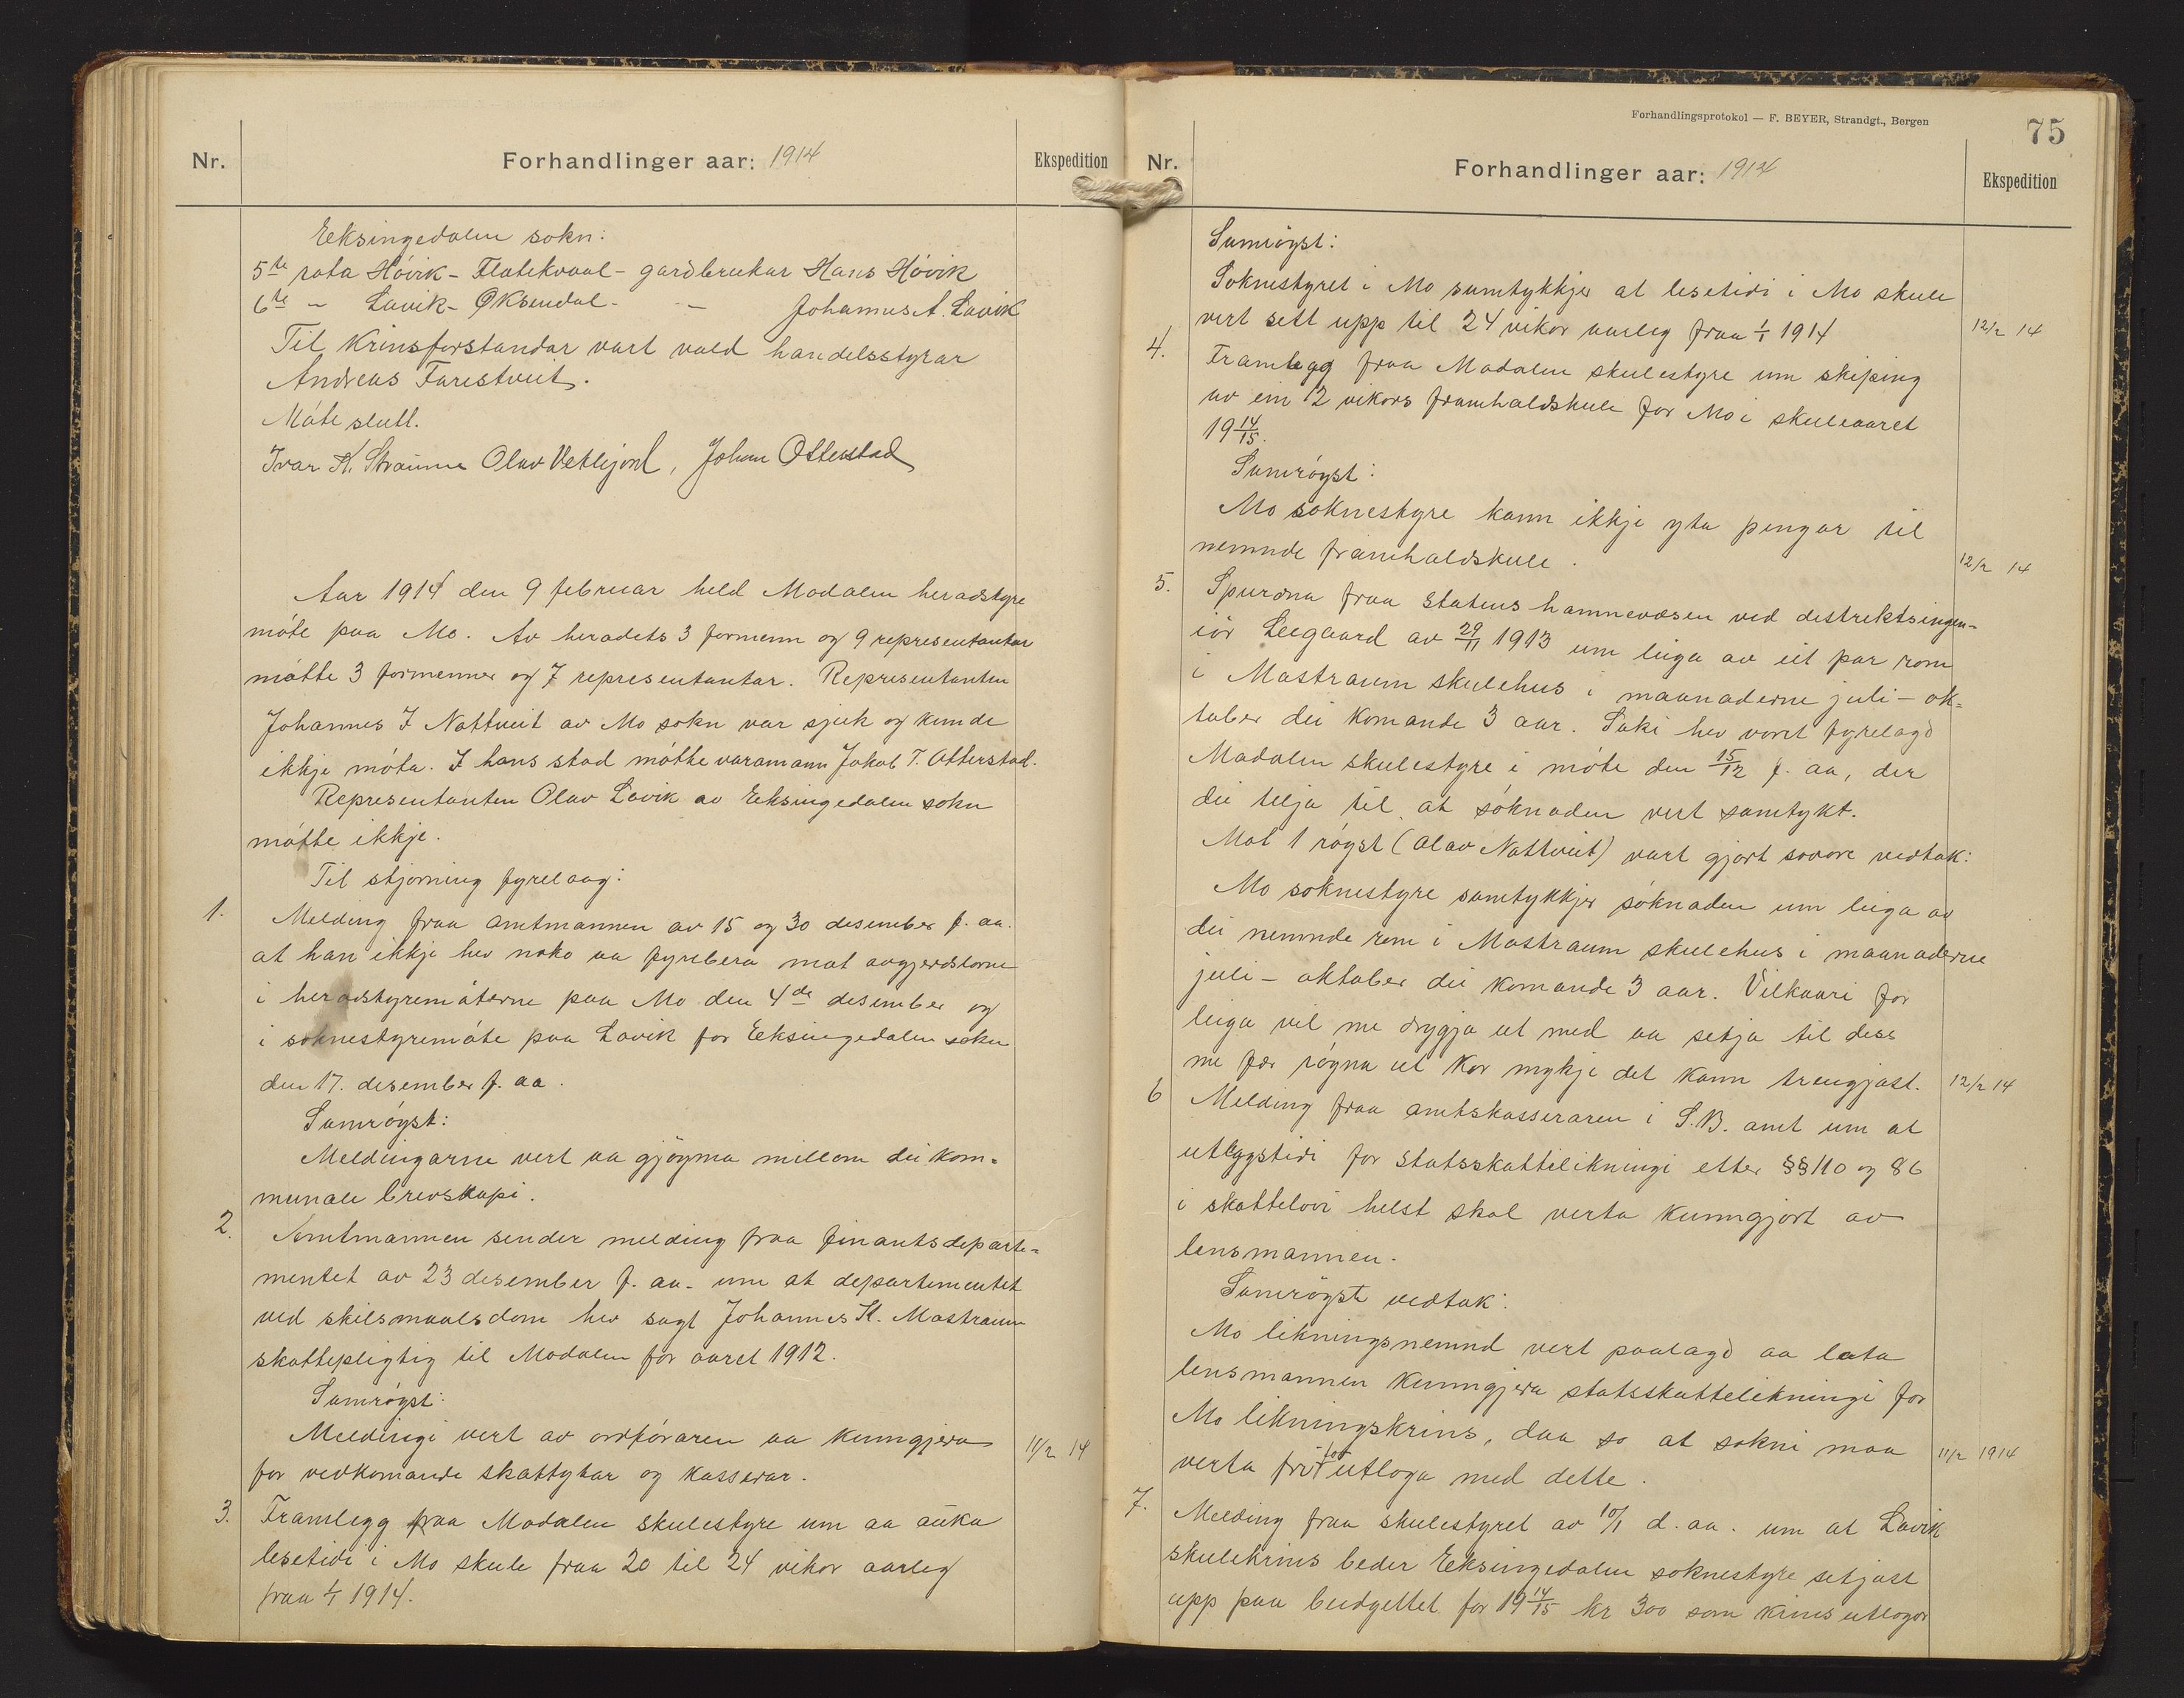 Nr.
Forhandlinger aar: 1914
Ekspedition
Eeksingedalen sokn:
5te rota Hóvik - Flatekvaal - gardbrukar Hans Hóvik
6te - Lavik - Øksendal - - Johannes A. Lavik
Til Krinsforstandar vart vald handelsstyrar
Andreas Farestveit.
Móte slutt.
Ivar K. Straume Olav Vetlejord, Johan Otterstad
Aar 1914 den 9 februar held Modalen heradstyre
móte paa Mo. Av heradets 3 formenn og 9 representantar
mótte 3 formenner og 7 representantar. Representanten
Johannes I Nottveit av Mo sokn var sjuk og kunde
ikkje móta. I hans stad mótte varamann Jakob T. Otterstad.
Representanten Olav Lavik av Eeksingedalen sokn
mótte ikkje.
Til stjorning fyrelaag:
1. Melding fraa amtmannen av 15 og 30 desember f. aa.
at han ikkje hev noko aa fyrebera mot avgjerdslorne
i heradstyremóterne paa Mo den 4de desember og
i soknestyremóte paa Lavik for Eeksingedalen sokn
den 17. desember f. aa.
Samróyst:
Meldingarne vert aa gjóyma millom dei kom-
munale brevskapi.
2. Amtmannen sender melding fraa finantsdeparte-
mentet av 23 desember f. aa. um at departementet
ved skilsmaalsdom hev sagt Johannes K. Mostraum
skattepligtig til Modalen for aaret 1912.
Samróyst:
Meldingi vert av ordfóraren aa kunngjera
for vedkomande skattytar og kasserar.
11/2 14
3. Framlegg fraa Modalen skulestyre um aa auka
lesetidi i Mo skule fraa 20 til 24 vikor aarleg
fraa 1/1 1914.
Forhandlingsprotokol — F. BEYER, Strandgt., Bergen
75
Nr.
Forhandlinger aar: 1914
Ekspedition
Samróyst:
Soknestyret i Mo samtykkjer at lesetidi i Mo skule
vert sett upp til 24 vikor aarleg fraa 1/1 1914
12/2 14
4. Framlegg fraa Modalen skulestyre um skiping
av ein 12 vikors framhaldskule for Mo i skuleaaret
19 14/15.
Samróyst:
Mo soknestyre kann ikkje yta pengar til
nemnde framhaldskule.
12/2 14
5. Spurdna fraa Statens hamnevæsen ved distriktsingen-
iór Leegaard av 29/11 1913 um leiga av eit par rom
i Mostraum skulehus i maanaderne juli - ok-
tober dei komande 3 aar. Saki hev voret fyrelagd
Modalen skulestyre i móte den 15/12 f. aa, der
dei telja til at sóknaden vert samtykt.
Mot 1 róyst (Olav Nottveit) vart gjort sovore vedtak:
Mo soknestyre samtykkjer sóknaden um leiga av
dei nemnde rom i Mostraum skulehus i maanaderne
juli - oktober dei komande 3 aar. Vilkaari for
leiga vil me drygja ut med aa setja til dess
me fær róyna ut kor mykje det kann trengjast.
12/2 14
6 Melding fraa amtskasseraren i S.B. amt um at
utlegstidi for statsskattelikningi etter §§ 110 og 86
i skattelovi helst skal verta kunngjort av
lensmannen.
Samróyst vedtak:
Mo likningsnemnd vert paalagd aa lata
lensmannen kunngjera statsskattelikningi for
Mo likningskrins, daa so at sokni maa
verta fri for utloga med dette.
11/2 1914
7. Melding fraa skulestyret av 10/1 d. aa. um at Lavik
skulekrins beder Eeksingedalen soknestyre setjast
upp paa budgettet for 19 14/15 kr 300 som krinsutlogor